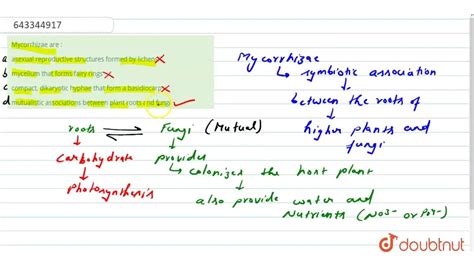 643344917
Mycorrhizae are :
a asexual reproductive structures formed by lichens
b mycelium that forms fairy rings
c compact, dikaryotic hyphae that form a basidiocarp
d mutualistic associations between plant roots and fungi
Mycorrhizae
symbiotic association
between the roots of
higher plants and
fungi
roots Fungi (Mutual)
Carbohydrate provides
Photosynthesis colonizes the host plant
also provide water and
Nutrients (NO3- or PO4-)
doubtnut